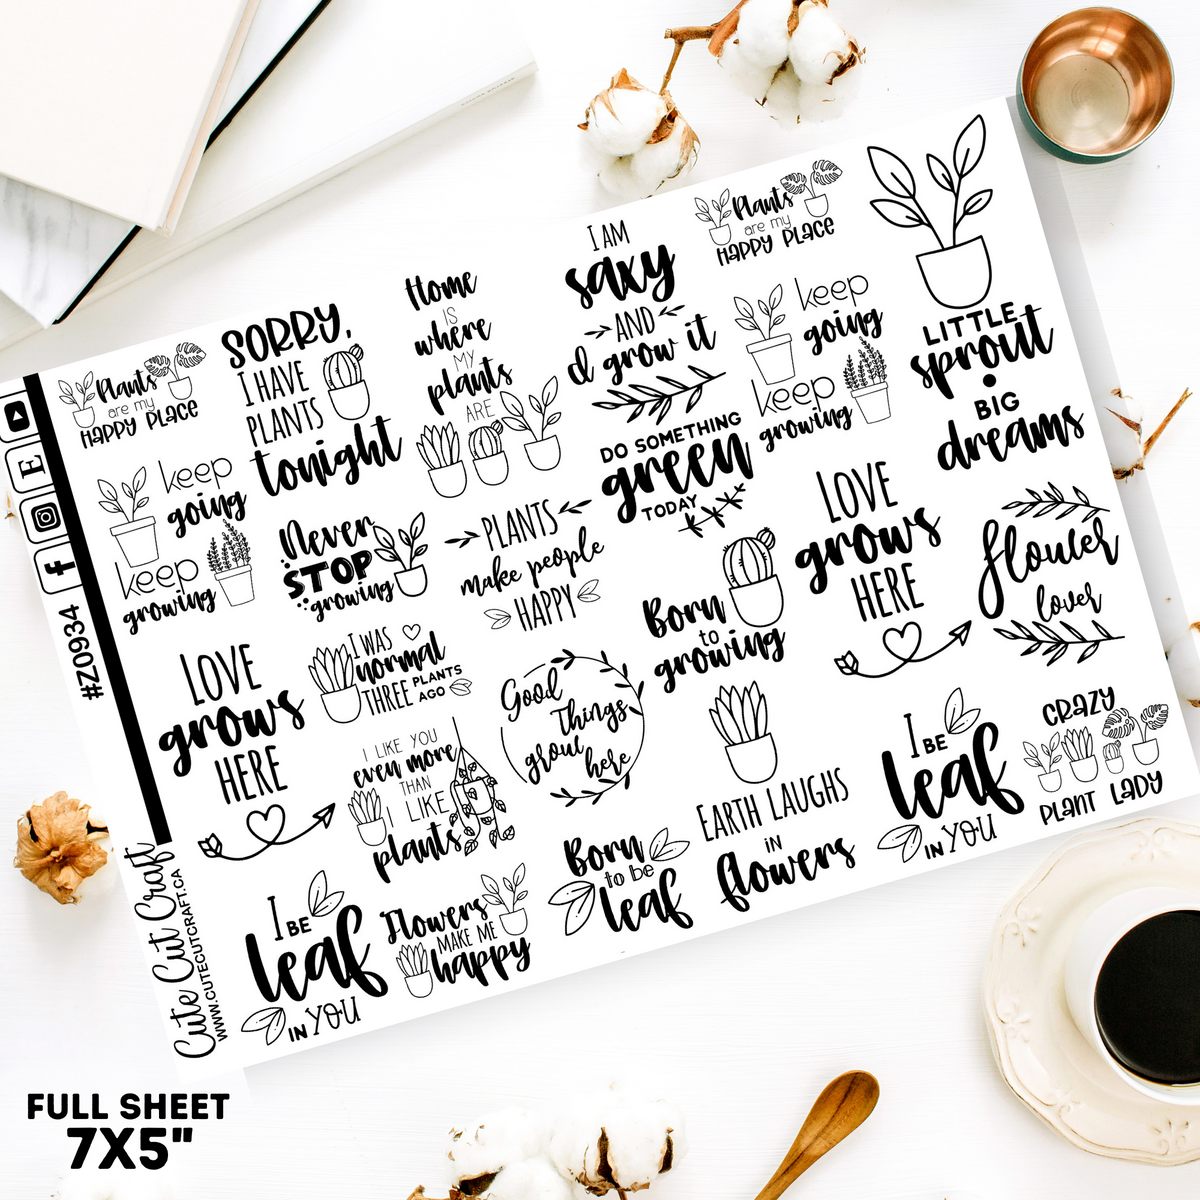 Plants
are my
HAPPY PLACE
keep
going
keep
growing
LOVE
grows
HERE
I BE
leaf
IN YOU
SORRY,
I HAVE
PLANTS
tonight
Never
STOP
growing
I WAS
normal
THREE PLANTS
AGO
I LIKE YOU
even more
THAN
I LIKE
plants
Flowers
MAKE ME
happy
Home
IS
where
MY
plants
ARE
PLANTS
make people
HAPPY
Good
Things
grow
here
Born
to be
leaf
I AM
saxy
AND
I'd grow it
DO SOMETHING
green
TODAY
Born
to
growing
EARTH LAUGHS
IN
flowers
Plants
are my
HAPPY PLACE
keep
going
keep
growing
LOVE
grows
HERE
I BE
leaf
IN YOU
LITTLE
sprout
BIG
dreams
flower
lover
CRAZY
PLANT LADY
E
f
#Z0934
Cute Cut Craft
WWW.CUTECUTCRAFT.CA
FULL SHEET
7X5"